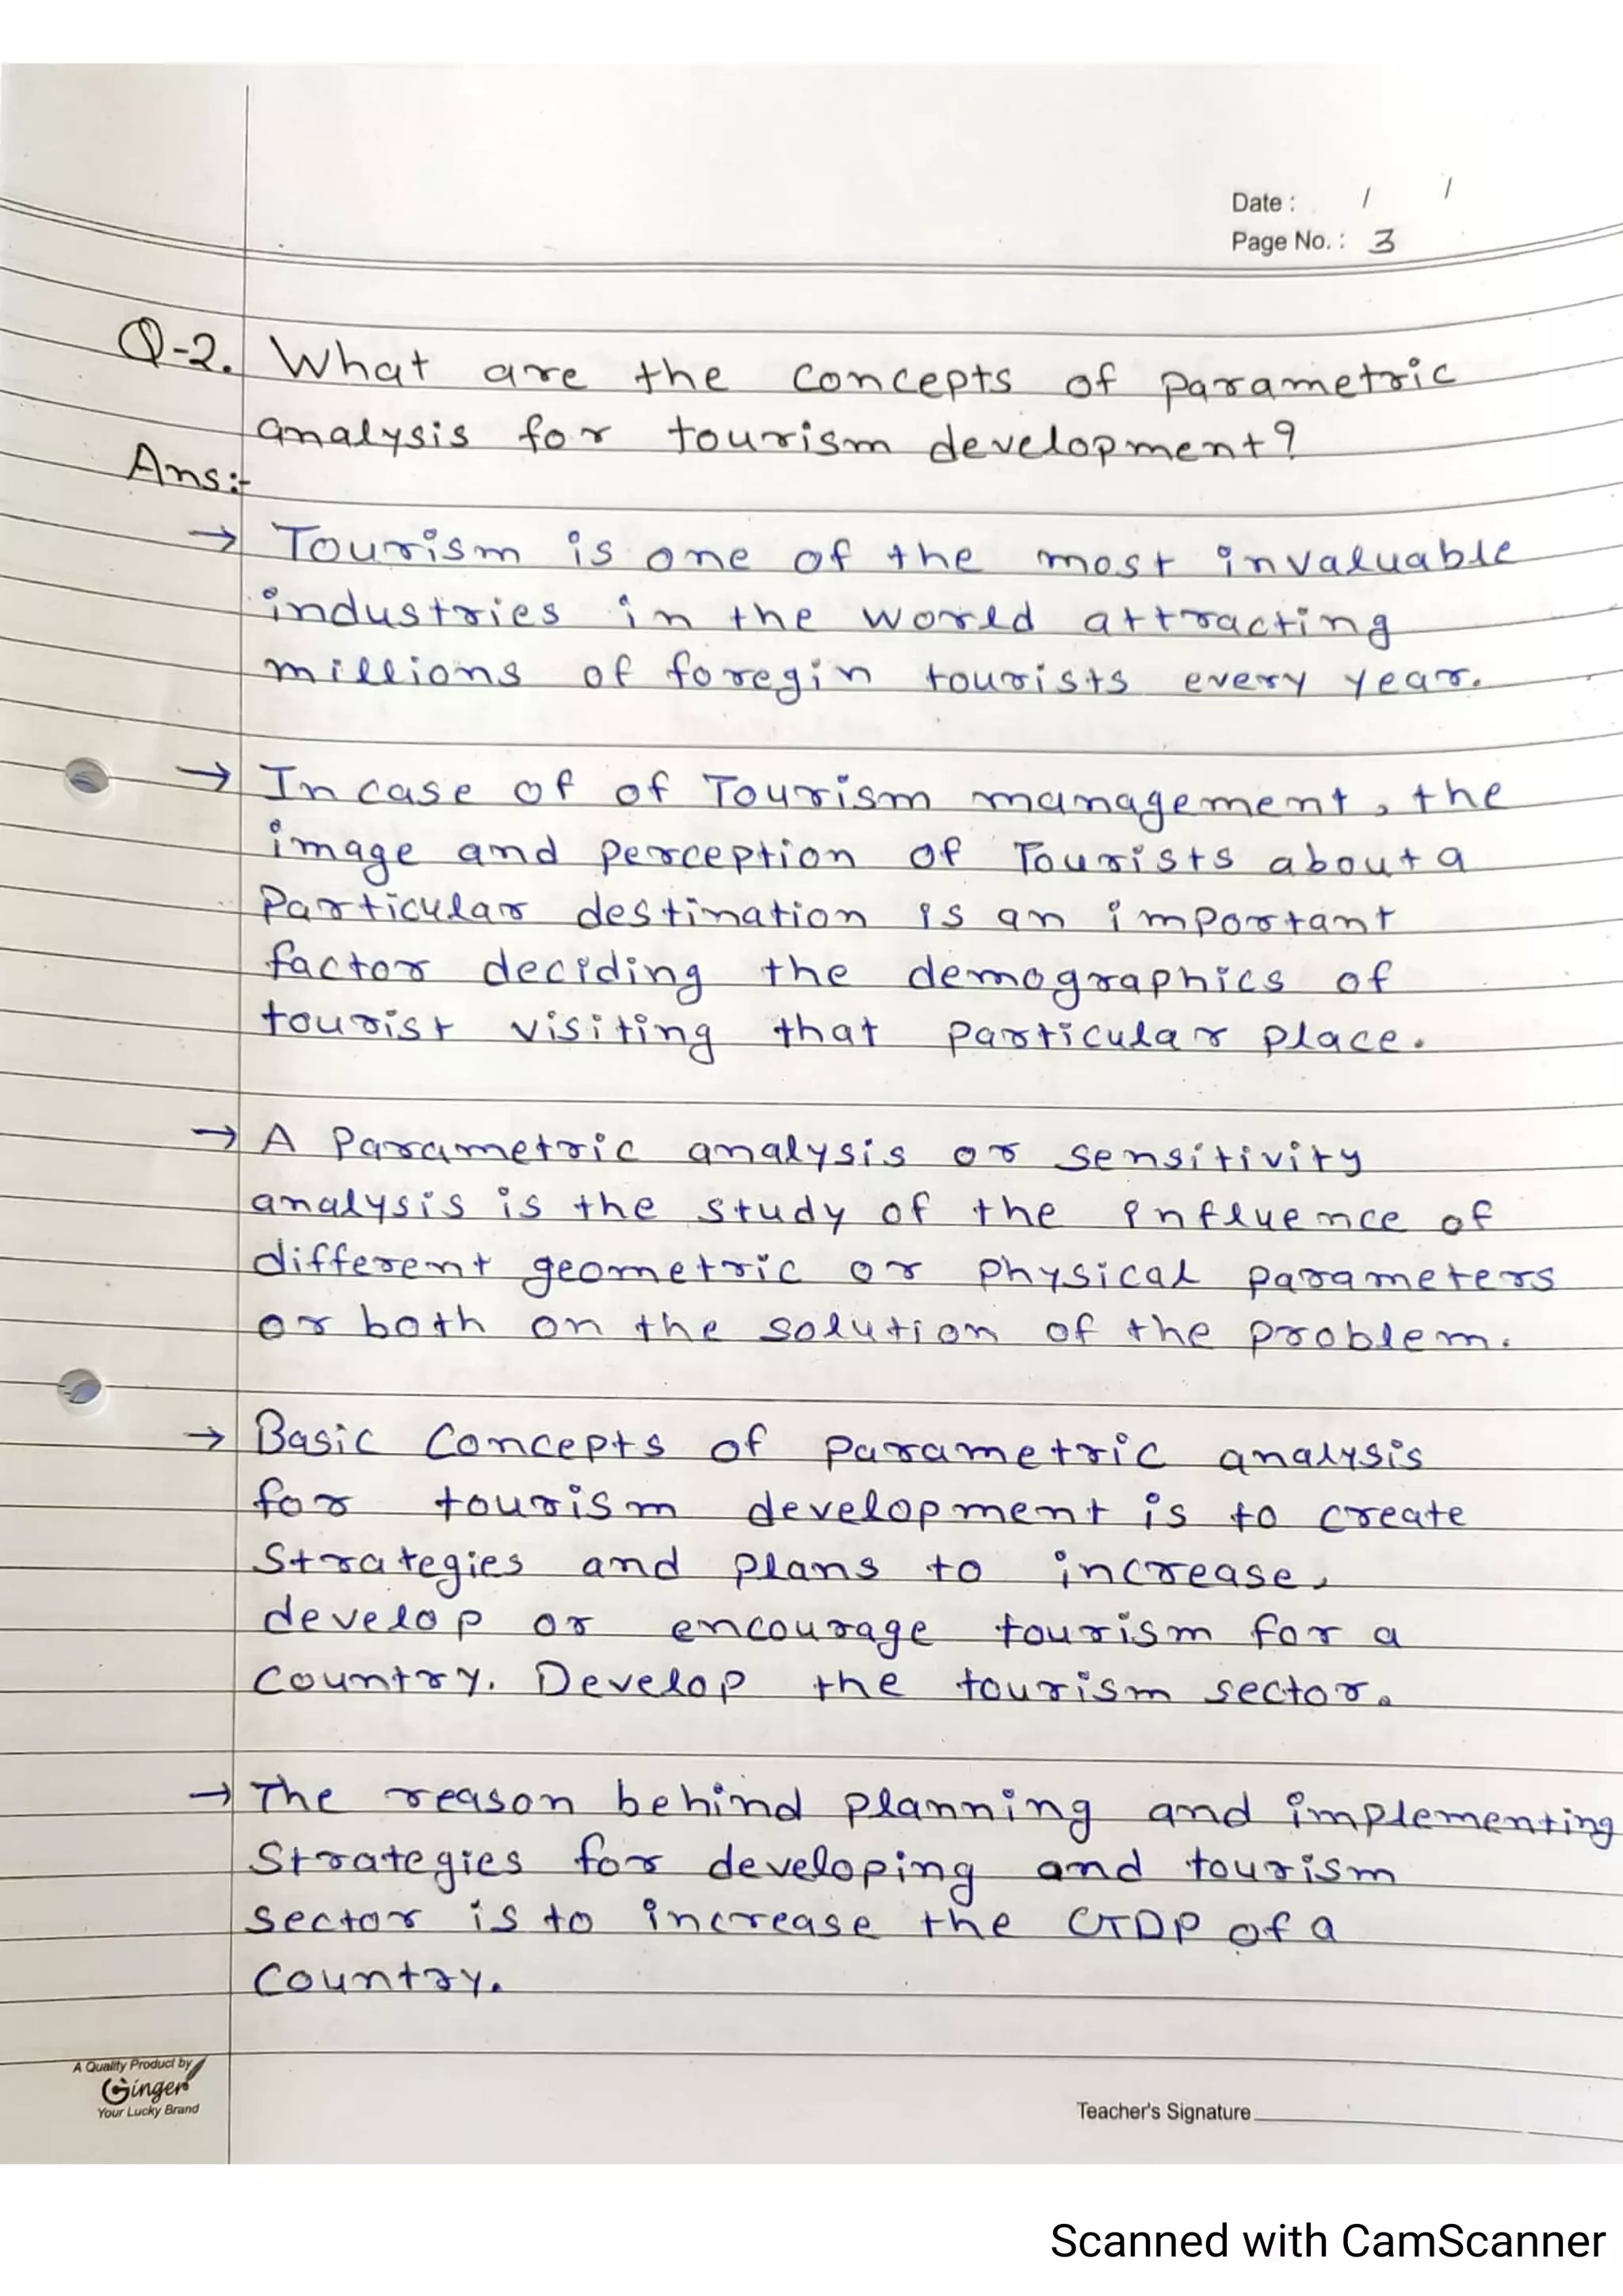 Date : / /
Page No. : 3
Q-2. What are the concepts of parametric
analysis for tourism development?
Ans:-
→ Tourism is one of the most invaluable
industries in the world attracting
millions of foregin tourists every year.
→ In case of of Tourism management, the
image and perception of Tourists about a
Particular destination is an important
factor deciding the demographics of
tourist visiting that particular place.
→ A Parametric analysis or sensitivity
analysis is the study of the influence of
different geometric or physical parameters
or both on the solution of the problem.
→ Basic Concepts of parametric analysis
for tourism development is to create
Strategies and plans to increase,
develop or encourage tourism for a
Country. Develop the tourism sector.
→ The reason behind planning and implementing
Strategies for developing and tourism
sector is to increase the GDP of a
Country.
A Quality Product by
Ginger
Your Lucky Brand
Teacher's Signature
Scanned with CamScanner